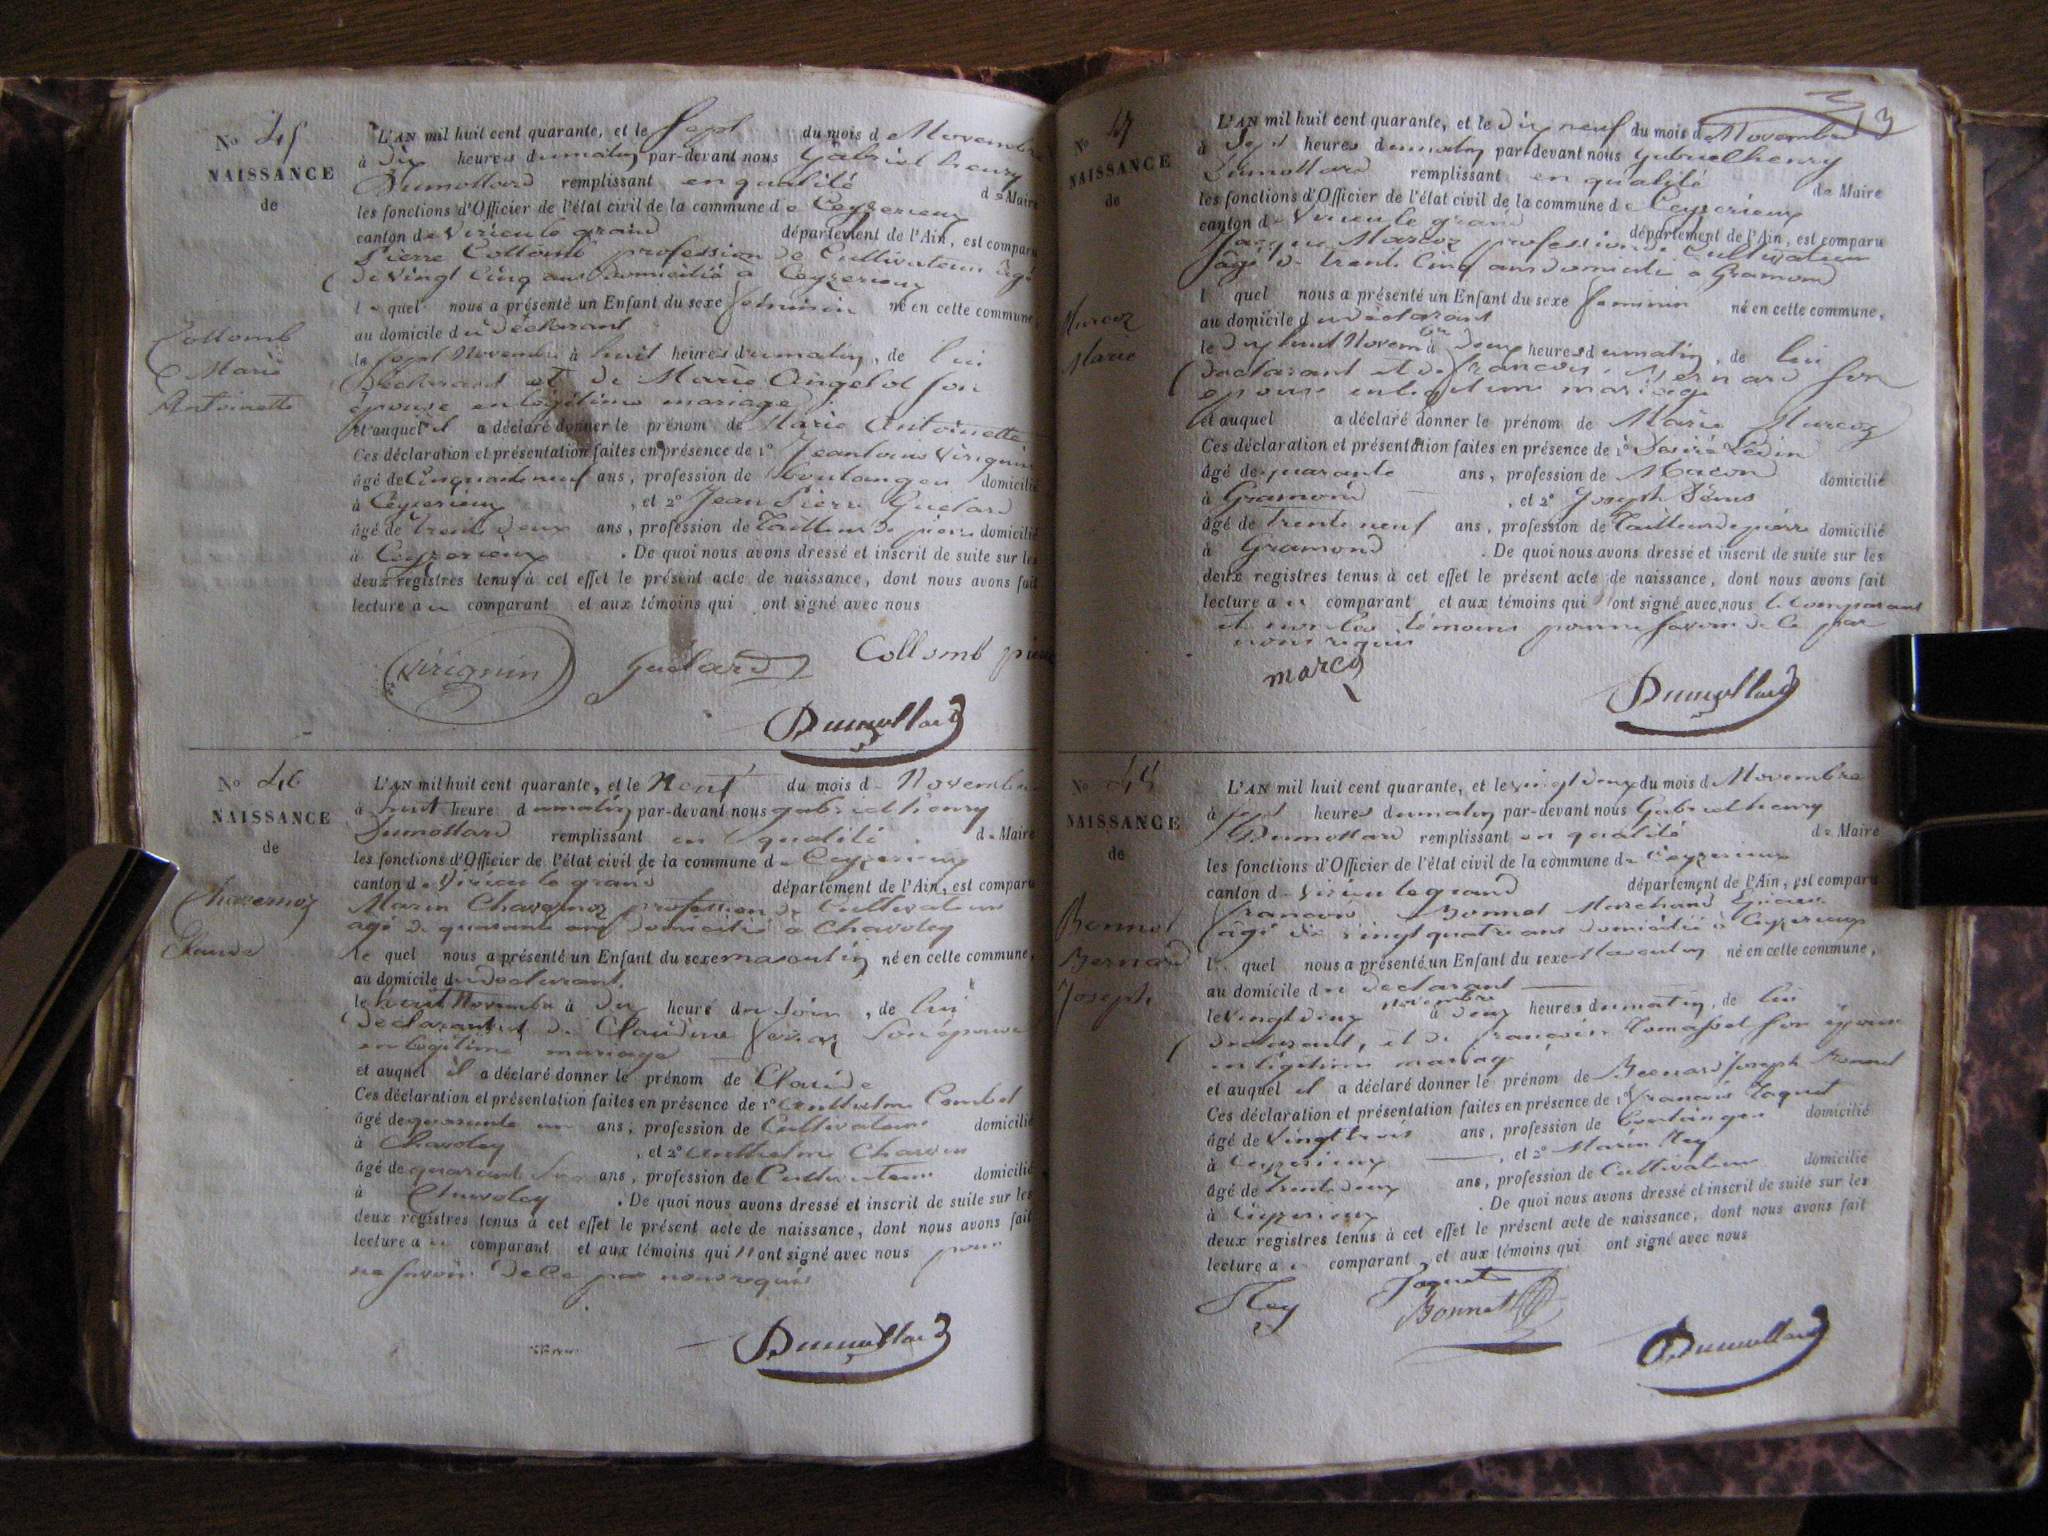 No 45
NAISSANCE
de
Collomb
Marie
Antoinette
L'AN mil huit cent quarante, et le Sept du mois de Novembre
à Dix heures du matin par-devant nous Gabriel henry
Dumollard remplissant en qualité de Maire
les fonctions d'Officier de l'état civil de la commune de Ceyzerieux
canton de Virieu le grand département de l'Ain, est comparu
Pierre Collomb profession de Cultivateur âgé
de vingt Cinq ans domicilié à Ceyzerieux
lequel nous a présenté un Enfant du sexe feminin né en cette commune,
au domicile du déclarant
le Sept Novembre à huit heures du matin, de lui
Déclarant et de Marie Angelot son
épouse en légitime mariage
et auquel il a déclaré donner le prénom de Marie Antoinette
Ces déclaration et présentation faites en présence de 1º Jean Louis Virignin
âgé de Cinquante neuf ans, profession de boulanger domicilié
à Ceyzerieux, et 2º Jean Pierre Guelard
âgé de trente deux ans, profession de Tailleur de pierre domicilié
à Ceyzerieux. De quoi nous avons dressé et inscrit de suite sur les
deux registres tenus à cet effet le présent acte de naissance, dont nous avons fait
lecture au comparant et aux témoins qui ont signé avec nous
Virignin Guelard Collomb pierre
Dumollard
No 46
NAISSANCE
de
Chavernoz
Claude
L'AN mil huit cent quarante, et le Neuf du mois de Novembre
à huit heure du matin par-devant nous gabriel henry
Dumollard remplissant en qualité de Maire
les fonctions d'Officier de l'état civil de la commune de Ceyzerieux
canton de Virieu le grand département de l'Ain, est comparu
Marin Chavernoz profession de Cultivateur
agé de quarante ans domicilié a Chavoley
le quel nous a présenté un Enfant du sexe masculin né en cette commune,
au domicile du declarant
le huit Novembre à Dix heure du soir, de lui
déclarant et de Claudine son épouse
en légitime mariage
et auquel il a déclaré donner le prénom de Claude
Ces déclaration et présentation faites en présence de 1º anthelme Combet
âgé de quarante un ans, profession de Cultivateur domicilié
à Chavoley, et 2º anthelme Charvin
âgé de quarante ans, profession de Cultivateur domicilié
à Chavoley. De quoi nous avons dressé et inscrit de suite sur les
deux registres tenus à cet effet le présent acte de naissance, dont nous avons fait
lecture au comparant et aux témoins qui n'ont signé avec nous pour
ne savoir de ce par nous requis
Dumollard
No 47
NAISSANCE
de
Marcoz
Marie
L'AN mil huit cent quarante, et le Dix neuf du mois de Novembre
à Sept heures du matin par-devant nous Gabriel henry
Dumollard remplissant en qualité de Maire
les fonctions d'Officier de l'état civil de la commune de Ceyzerieux
canton de Virieu le grand département de l'Ain, est comparu
Jacque Marcoz profession de Cultivateur
âgé de trente Cinq ans domicilié à Gramond
l quel nous a présenté un Enfant du sexe feminin né en cette commune,
au domicile du déclarant
le Dix huit Novembre à Deux heures du matin, de lui
declarant et de françoise Bernard son
épouse en légitime mariage
et auquel a déclaré donner le prénom de Marie Marcoz
Ces déclaration et présentation faites en présence de 1º Désiré
âgé de quarante ans, profession de Macon domicilié
à Gramond, et 2º Joseph
âgé de trente neuf ans, profession de Tailleur de pierre domicilié
à Gramond. De quoi nous avons dressé et inscrit de suite sur les
deux registres tenus à cet effet le présent acte de naissance, dont nous avons fait
lecture au comparant et aux témoins qui ont signé avec nous le Comparant
et non les témoins pour ne savoir de ce par
nous requis
marcoz
Dumollard
No
NAISSANCE
de
Bonnet
Bernard
Joseph
L'AN mil huit cent quarante, et le vingt deux du mois de Novembre
à sept heures du matin par-devant nous Gabriel henry
Dumollard remplissant en qualité de Maire
les fonctions d'Officier de l'état civil de la commune de Ceyzerieux
canton de Virieu le grand département de l'Ain, est comparu
françois Bonnet Marchand Epicier
âgé de vingt quatre ans domicilié à Ceyzerieux
l quel nous a présenté un Enfant du sexe Masculin né en cette commune,
au domicile du declarant
le vingt deux novembre à deux heures du matin, de lui
déclarant, et de françoise son épouse
en légitime mariage
et auquel il a déclaré donner le prénom de Bernard Joseph Bonnet
Ces déclaration et présentation faites en présence de 1º françois Jaquet
âgé de Vingt trois ans, profession de boulanger domicilié
à Ceyzerieux, et 2º Marin Rey
âgé de trente deux ans, profession de Cultivateur domicilié
à Ceyzerieux. De quoi nous avons dressé et inscrit de suite sur les
deux registres tenus à cet effet le présent acte de naissance, dont nous avons fait
lecture au comparant et aux témoins qui ont signé avec nous
Rey Jaquet
Bonnet
Dumollard